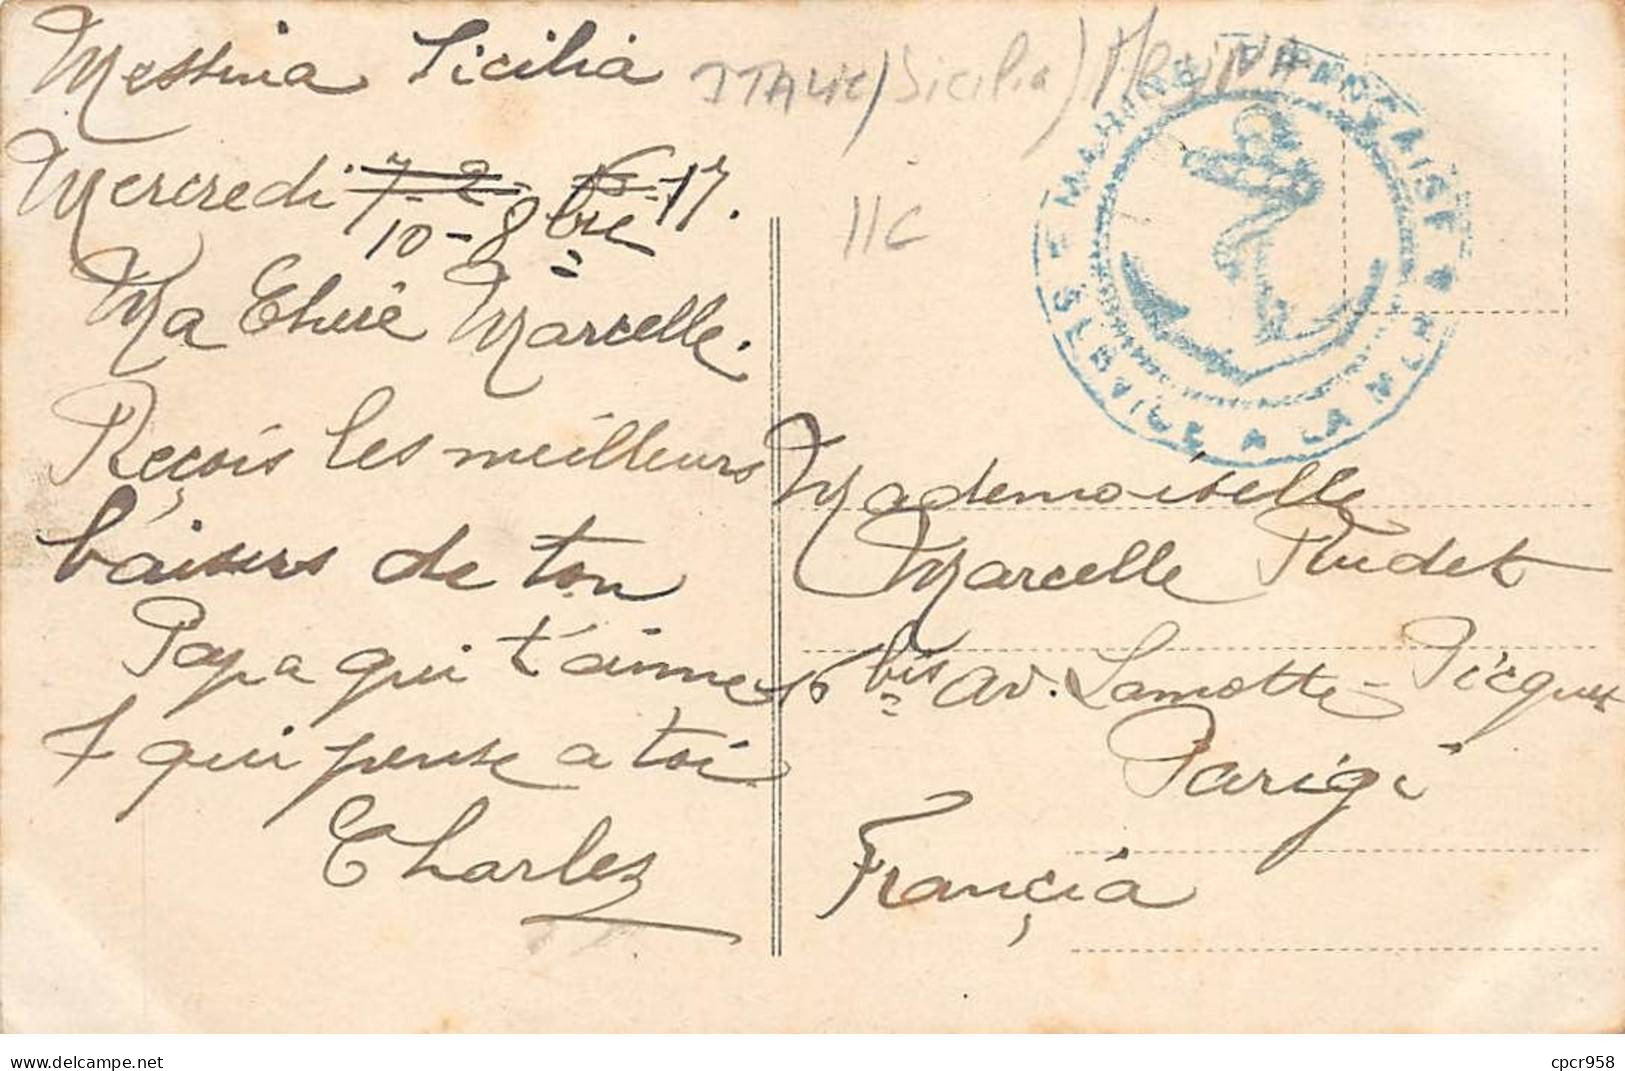 Messina Sicilia
Mercredi 7-2-16-17.
10-8bre
Ma Chère Marcelle.
Reçois les meilleurs
baisers de ton
Papa qui t'aime
& qui pense a toi
Charles
ITALIE/Sicilia)
11C
MARINE FRANÇAISE
SERVICE A LA MER
Mademoiselle
Marcelle Rudet
16 bis av. Lamotte-Picquet
Parigi
Françia
cpcr958